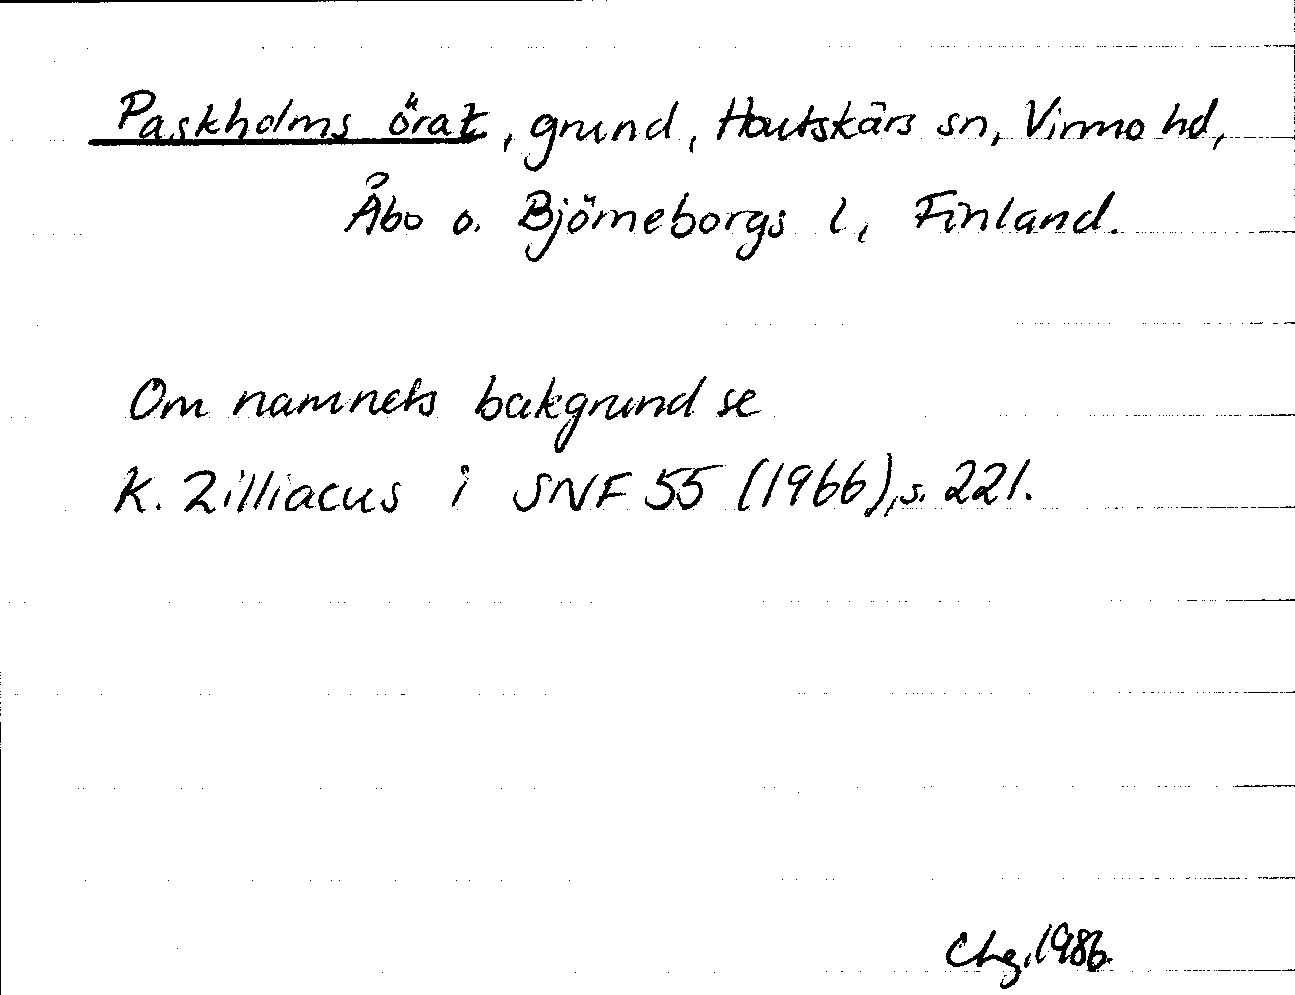 Paskholms örat, grund, Houtskärs sn, Virmo hd,
Åbo o. Björneborgs l, Finland.
Om namnets bakgrund se
K. Zilliacus i SNF 55 (1966), s. 221.
Chg, 1986.